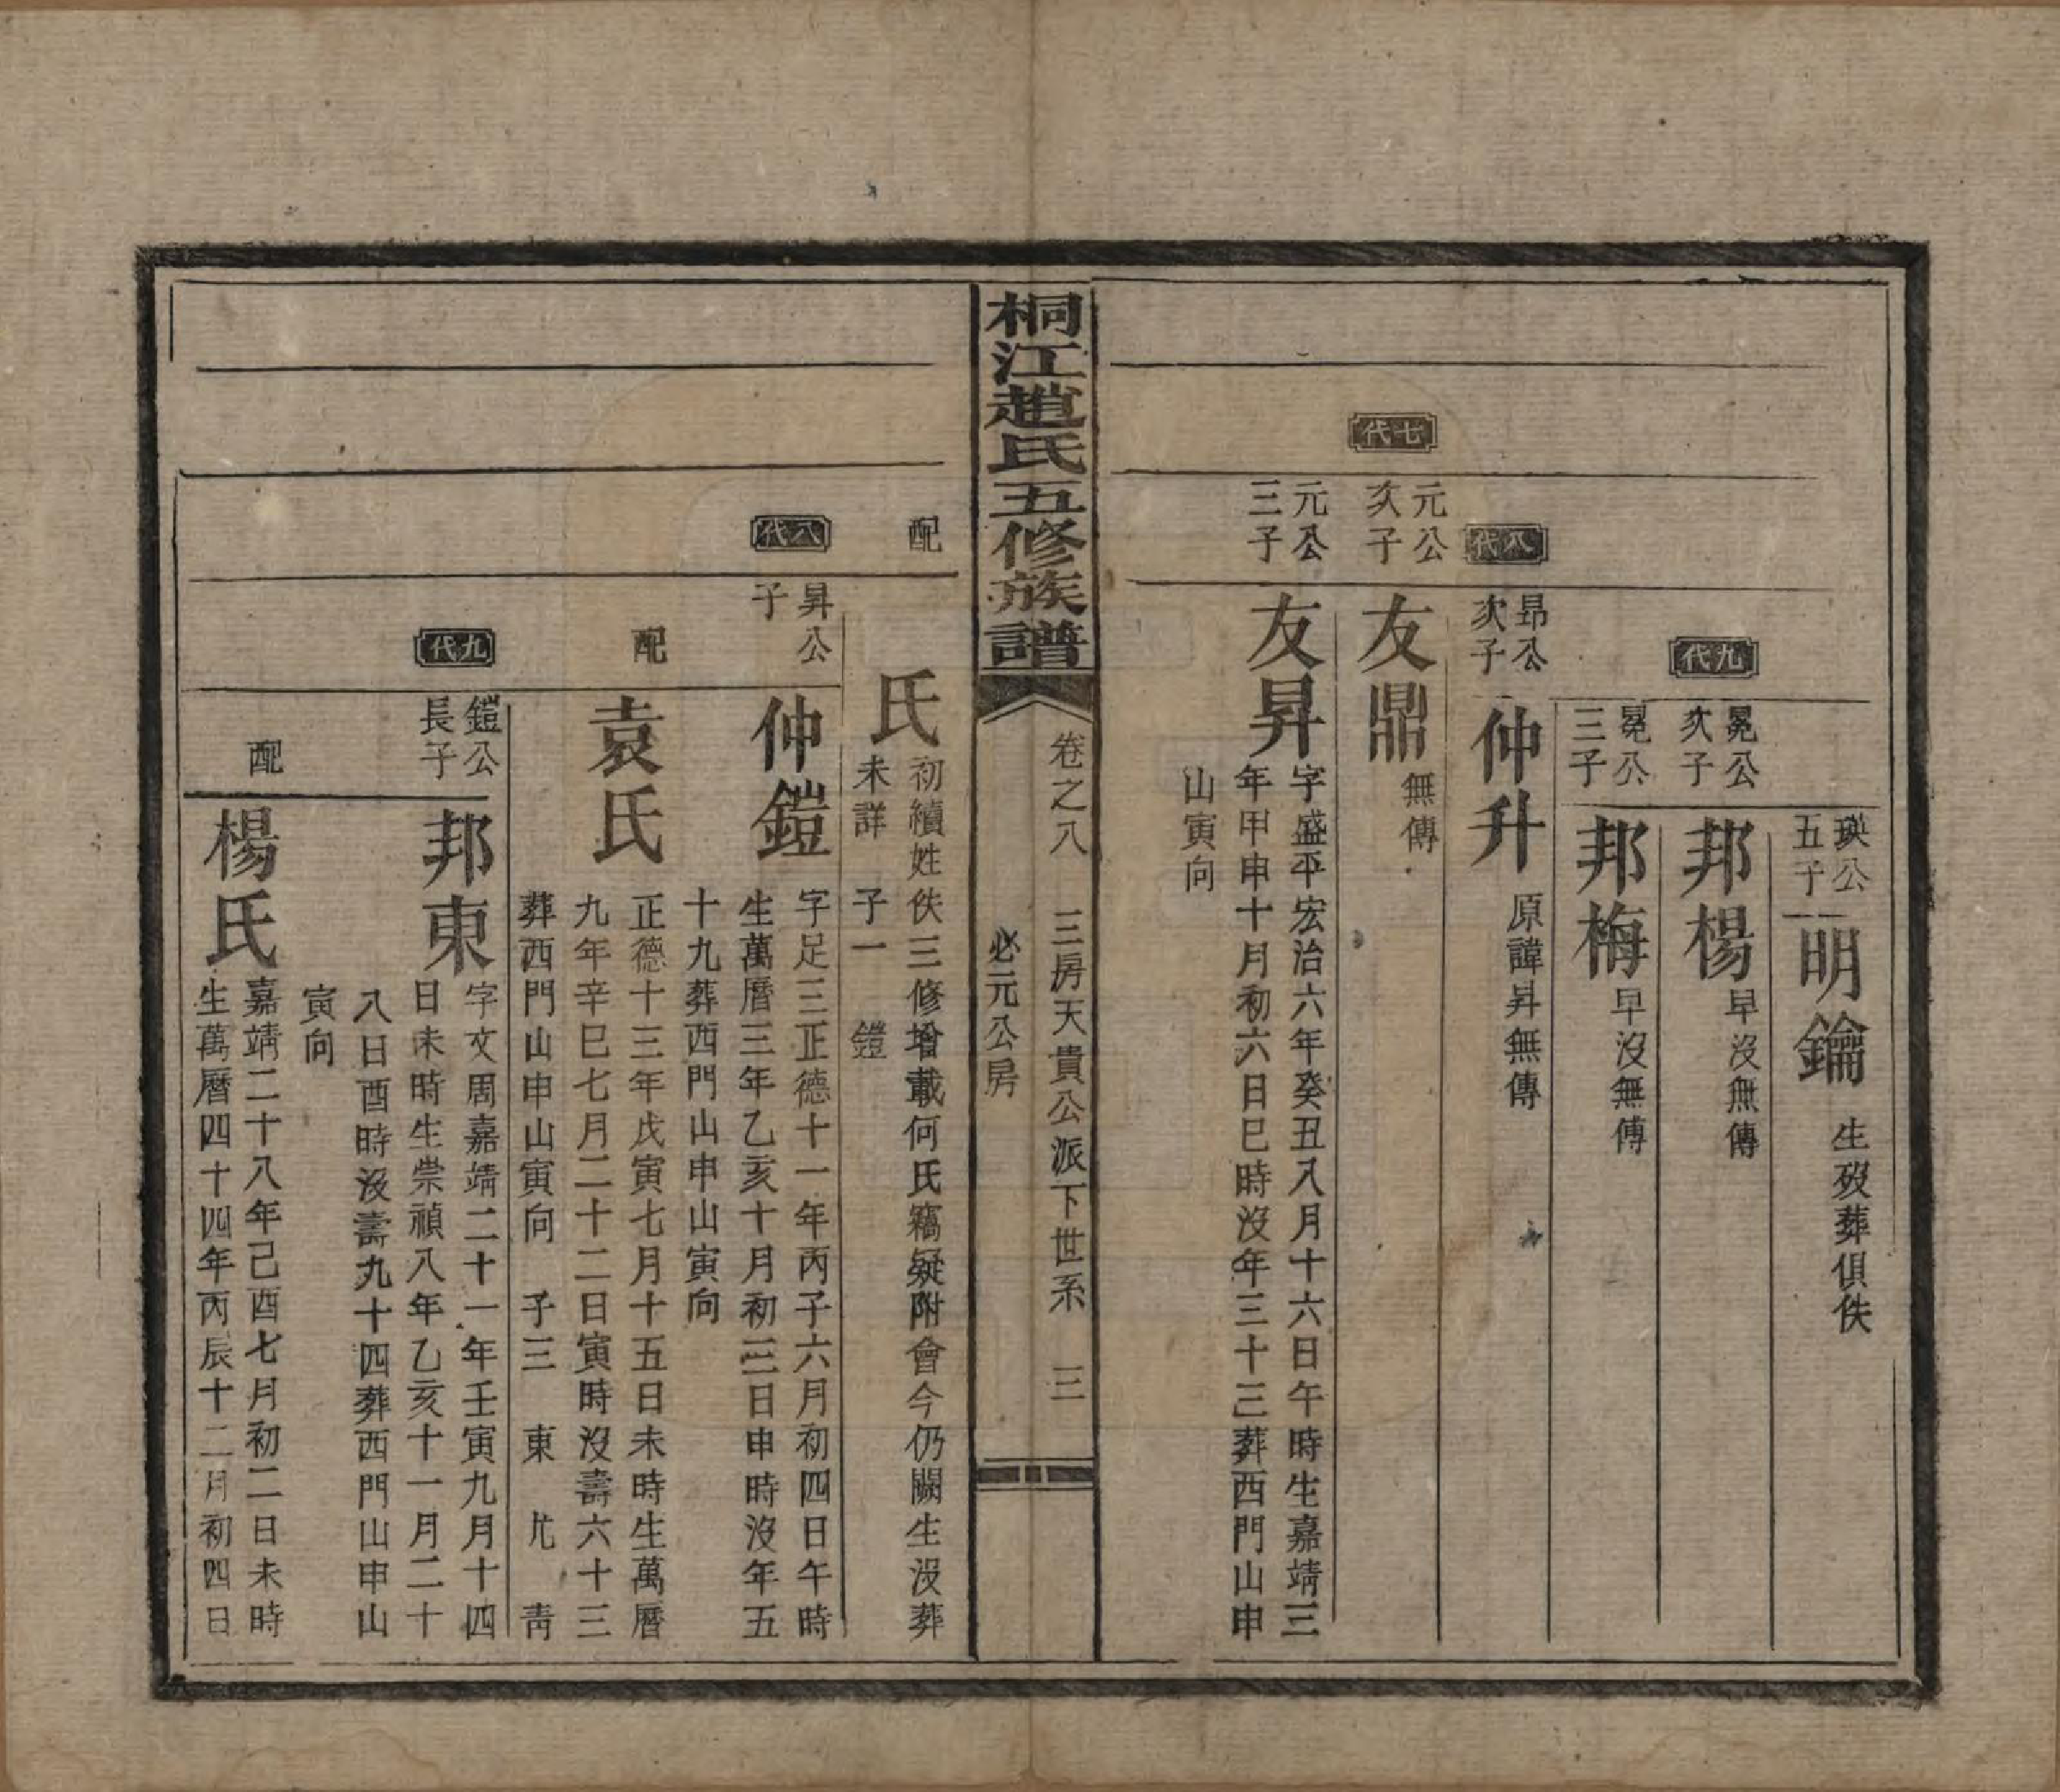 瑛公
五子
明鑰
生歿葬俱佚
九代
冕公
次子
邦楊
早沒無傳
冕公
三子
邦梅
早沒無傳
八代
昂公
次子
仲升
原諱昇無傳
七代
元公
次子
友鼎
無傳
元公
三子
友昇
字盛平宏治六年癸丑八月十六日午時生嘉靖三
年甲申十月初六日巳時沒年三十三葬西門山申
山寅向
桐江趙氏五修族譜
卷之八 三房天貴公派下世系 三
必元公房
配
氏
初續姓佚三修增載何氏竊疑附會今仍闕生沒葬
未詳 子一 鎧
八代
昇公
子
仲鎧
字足三正德十一年丙子六月初四日午時
生萬曆三年乙亥十月初三日申時沒年五
十九葬西門山申山寅向
配
袁氏
正德十三年戊寅七月十五日未時生萬曆
九年辛巳七月二十二日寅時沒壽六十三
葬西門山申山寅向 子三 東 尤 靑
九代
鎧公
長子
邦東
字文周嘉靖二十一年壬寅九月十四
日未時生崇禎八年乙亥十一月二十
八日酉時沒壽九十四葬西門山申山
寅向
配
楊氏
嘉靖二十八年己酉七月初二日未時
生萬曆四十四年丙辰十二月初四日